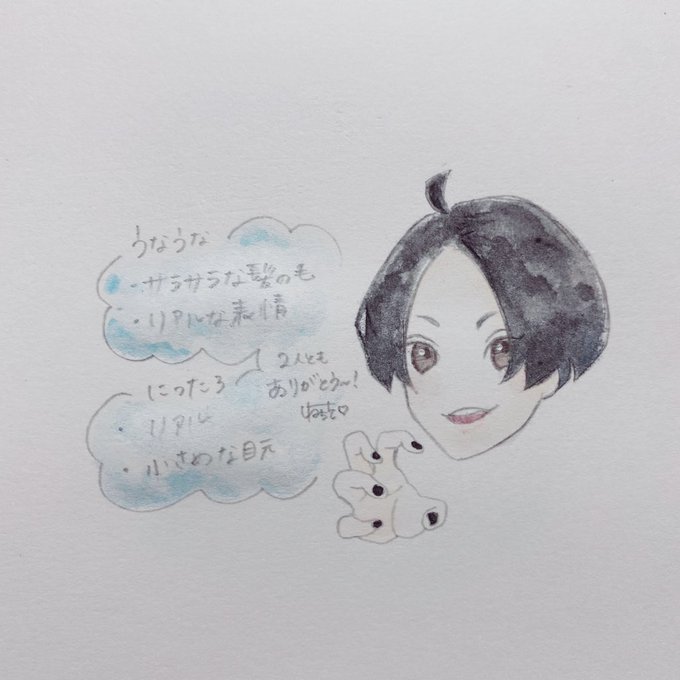 うなうな
・サラサラな髪の毛
・リアルな表情
にったろ
・リアル
・小さめな目元
2人とも
ありがとう〜!